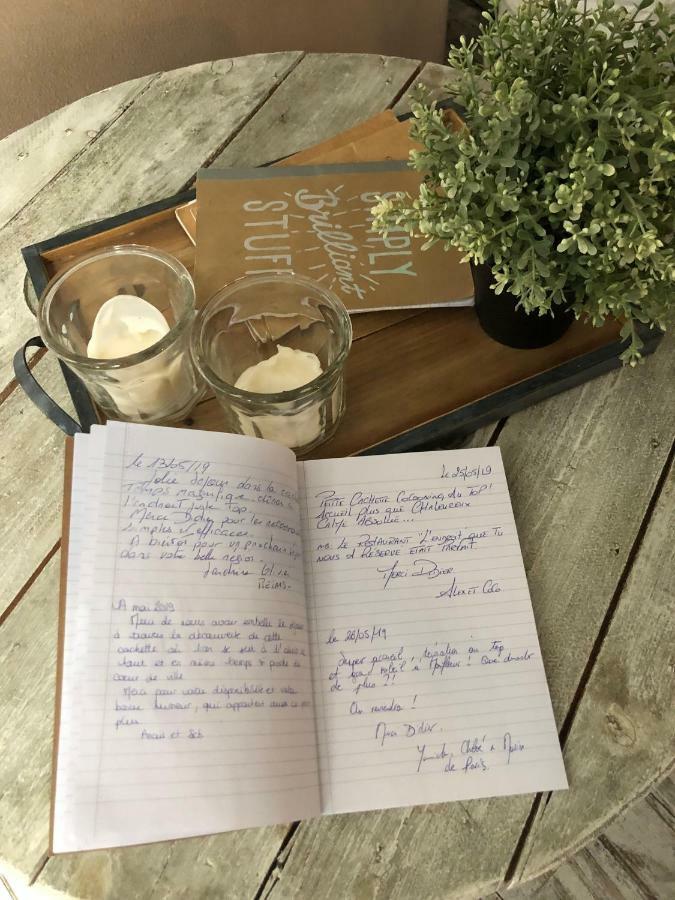 SIMPLY
Brilliant
STUFF
le 13/05/19
Jolie séjour dans la
Temps magnifique
l'endroit juste top.
Merci Didier pour les
simples et efficaces
A bientôt pour un prochain
dans votre belle région.
REIMS.
mai 2019
Merci de nous avoir
à travers la découverte de cette
cachette où l'on se sent à l'
tout et en même temps proche du
cœur de ville
Merci pour votre disponibilité et votre
bonne humeur, qui
plus
Anais et Seb
le 25/05/19
PETITE CACHETTE COCOONING, AU TOP!
ACCUEIL PLUS QUE CHALEUREUX
CALME ABSOLUE...
NB: LE RESTAURANT "L'ENDROIT" QUE TU
NOUS A RÉSERVÉ ÉTAIT PARFAIT.
MERCI DIDIER
ALEX ET COCO
le 28/05/19
Super accueil, situation au Top
et grand soleil à Honfleur! Que demander
de plus?!
On reviendra!
Merci Didier.
Chloé &
de Paris.